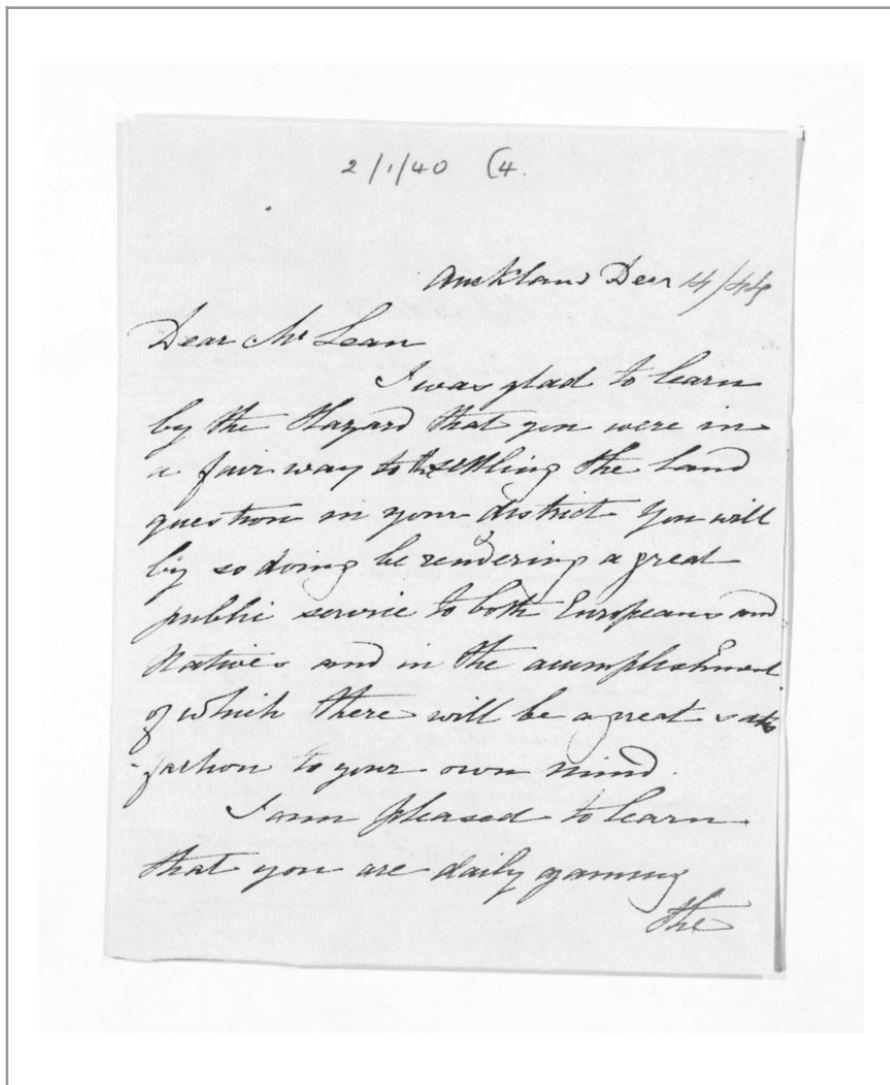 2/1/40 (4.
Auckland Decr 14/44
Dear Mr Lean
I was glad to learn
by the Hazard that you were in
a fair way to settling the land
question in your district You will
by so doing be rendering a great
public service to both Europeans and
Natives and in the accomplishment
of which there will be a great satis
-faction to your own mind.
I am pleased to learn
that you are daily gaining
the